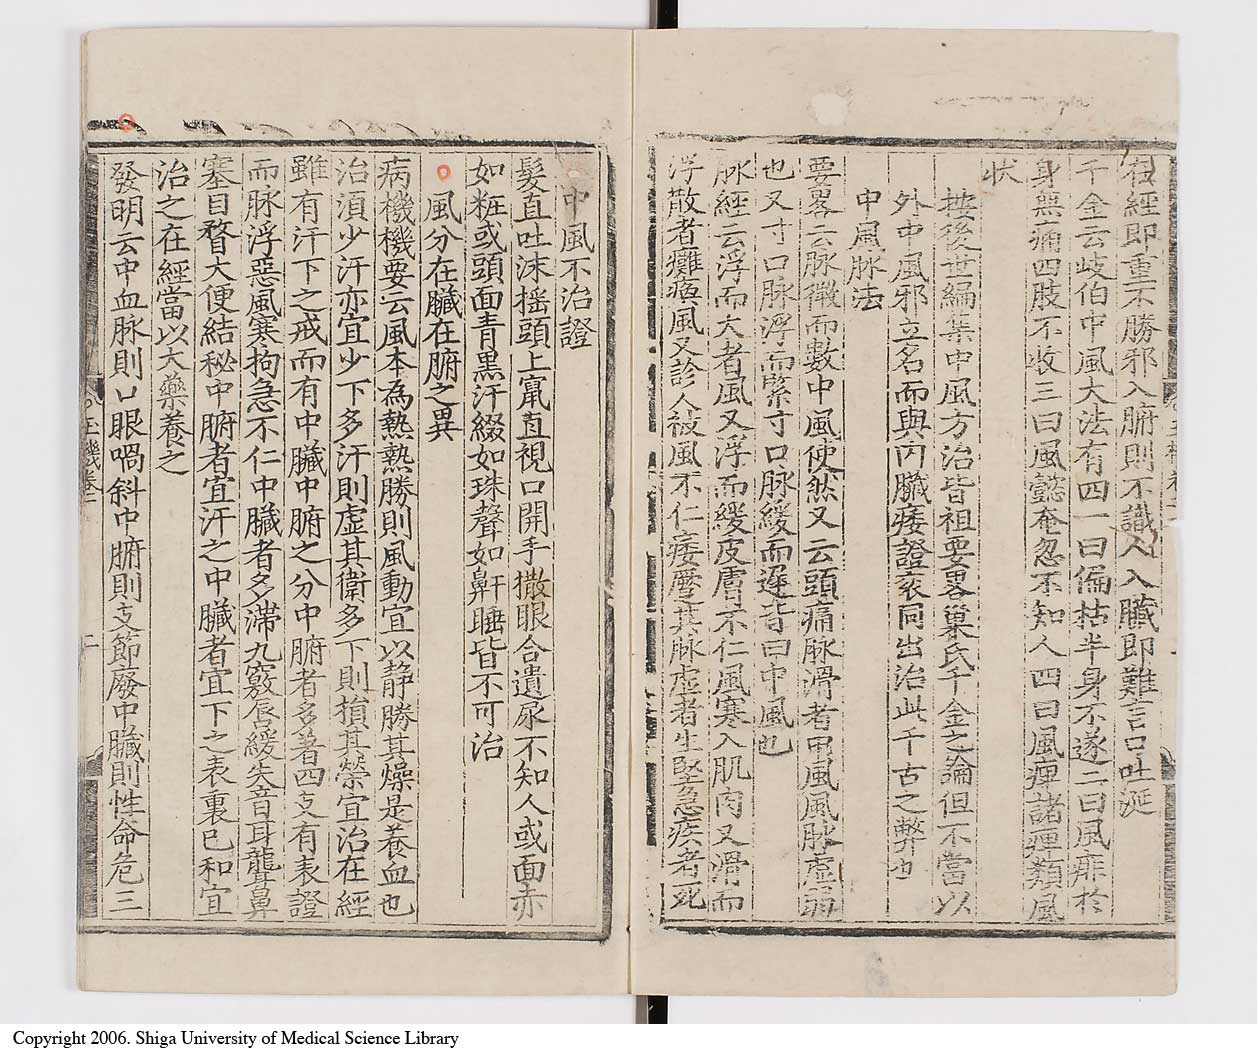 在經即重不勝邪入腑則不識人入臟即難言口吐涎
千金云岐伯中風大法有四一曰偏枯半身不遂二曰風痱於
身無痛四肢不收三曰風懿奄忽不知人四曰風痺諸痺類風
狀
按後世編集中風方治皆祖要畧巢氏千金之論但不當以
外中風邪立名而與內臟痿證衮同出治此千古之弊也
中風脉法
要畧云脉微而數中風使然又云頭痛脉滑者中風風脉虛弱
也又寸口脉浮而緊寸口脉緩而遲皆曰中風也
脉經云浮而大者風又浮而緩皮膚不仁風寒入肌肉又滑而
浮散者癱瘓風又診人被風不仁痿蹷其脉虛者生堅急疾者死
中風不治證
髮直吐沫揺頭上竄直視口開手撒眼合遺尿不知人或面赤
如粧或頭面青黑汗綴如珠聲如鼻鼾睡皆不可治
風分在臟在腑之異
病機機要云風本為熱熱勝則風動宜以静勝其燥是養血也
治湏少汗亦宜少下多汗則虛其衛多下則損其榮宜治在經
雖有汗下之戒而有中臟中腑之分中腑者多著四支有表證
而脉浮惡風寒拘急不仁中臟者多滯九竅唇緩失音耳聾鼻
塞目瞀大便結秘中腑者宜汗之中臟者宜下之表裏已和宜
治之在經當以大藥養之
發明云中血脉則口眼喎斜中腑則支節廢中臟則性命危三
玉機卷二
Copyright 2006. Shiga University of Medical Science Library